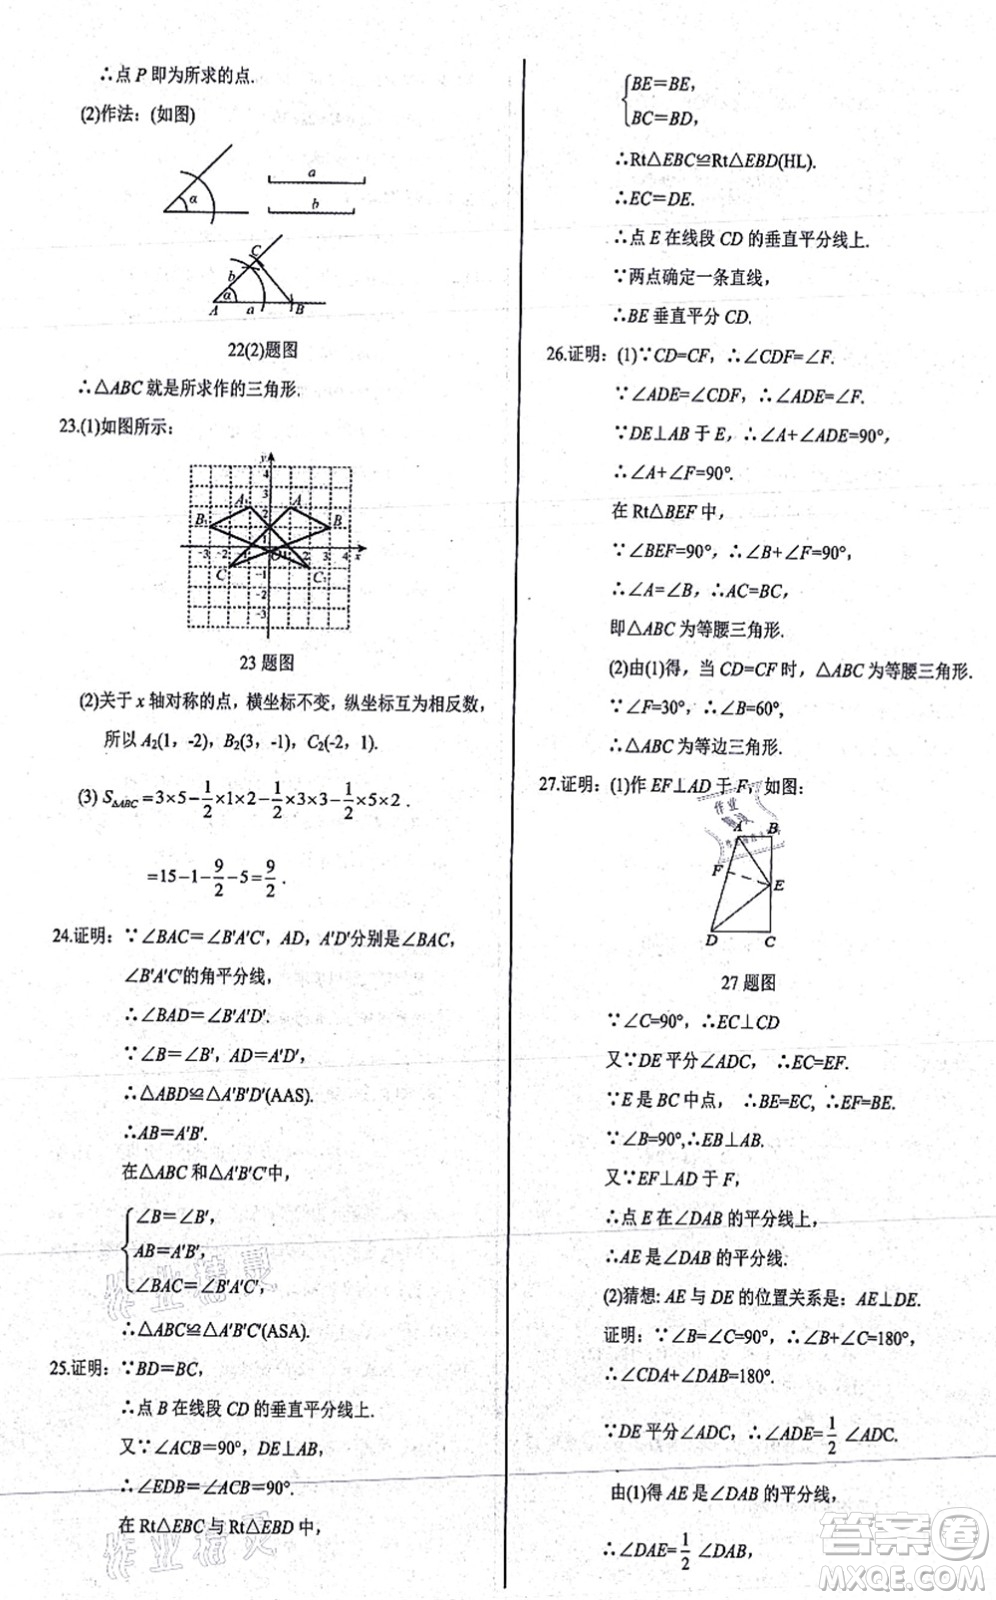 ∴点 P 即为所求的点.
(2)作法：(如图)
α
a
b
A
α
b
C
a
B
22(2)题图
∴△ABC 就是所求作的三角形.
23.(1)如图所示：
y
4
3
2
1
A₁
A
B₁
B
-3 -2 -1 O 1 2 3 4 x
C
C₁
-1
-2
-3
23 题图
(2)关于 x 轴对称的点，横坐标不变，纵坐标互为相反数，
所以 A₂(1，-2)，B₂(3，-1)，C₂(-2，1).
(3) S△ABC=3×5-1/2×1×2-1/2×3×3-1/2×5×2.
=15-1-9/2-5=9/2.
24.证明：∵∠BAC=∠B'A'C'，AD，A'D'分别是∠BAC，
∠B'A'C'的角平分线，
∴∠BAD=∠B'A'D'.
∵∠B=∠B'，AD=A'D'，
∴△ABD≌△A'B'D'(AAS).
∴AB=A'B'.
在△ABC 和△A'B'C'中，
∠B=∠B'，
AB=A'B'，
∠BAC=∠B'A'C'，
∴△ABC≌△A'B'C'(ASA).
25.证明：∵BD=BC，
∴点 B 在线段 CD 的垂直平分线上.
又∵∠ACB=90°，DE⊥AB，
∴∠EDB=∠ACB=90°.
在 Rt△EBC 与 Rt△EBD 中，
作业精灵
作业精灵
BE=BE，
BC=BD，
∴Rt△EBC≌Rt△EBD(HL).
∴EC=DE.
∴点 E 在线段 CD 的垂直平分线上.
∵两点确定一条直线，
∴BE 垂直平分 CD.
26.证明：(1)∵CD=CF，∴∠CDF=∠F.
∵∠ADE=∠CDF，∴∠ADE=∠F.
∵DE⊥AB 于 E，∴∠A+∠ADE=90°，
∴∠A+∠F=90°.
在 Rt△BEF 中，
∵∠BEF=90°，∴∠B+∠F=90°，
∴∠A=∠B，∴AC=BC，
即△ABC 为等腰三角形.
(2)由(1)得，当 CD=CF 时，△ABC 为等腰三角形.
∵∠F=30°，∴∠B=60°，
∴△ABC 为等边三角形.
27.证明：(1)作 EF⊥AD 于 F，如图：
作业
A B
F
E
D C
27 题图
∵∠C=90°，∴EC⊥CD
又∵DE 平分∠ADC，∴EC=EF.
∵E 是 BC 中点，∴BE=EC，∴EF=BE.
∵∠B=90°,∴EB⊥AB.
又∵EF⊥AD 于 F，
∴点 E 在∠DAB 的平分线上，
∴AE 是∠DAB 的平分线.
(2)猜想: AE 与 DE 的位置关系是：AE⊥DE.
证明：∵∠B=∠C=90°，∴∠B+∠C=180°，
∴∠CDA+∠DAB=180°.
∵DE 平分∠ADC，∴∠ADE=1/2 ∠ADC.
由(1)得 AE 是∠DAB 的平分线，
∴∠DAE=1/2 ∠DAB，
答案圈
MXQE.COM